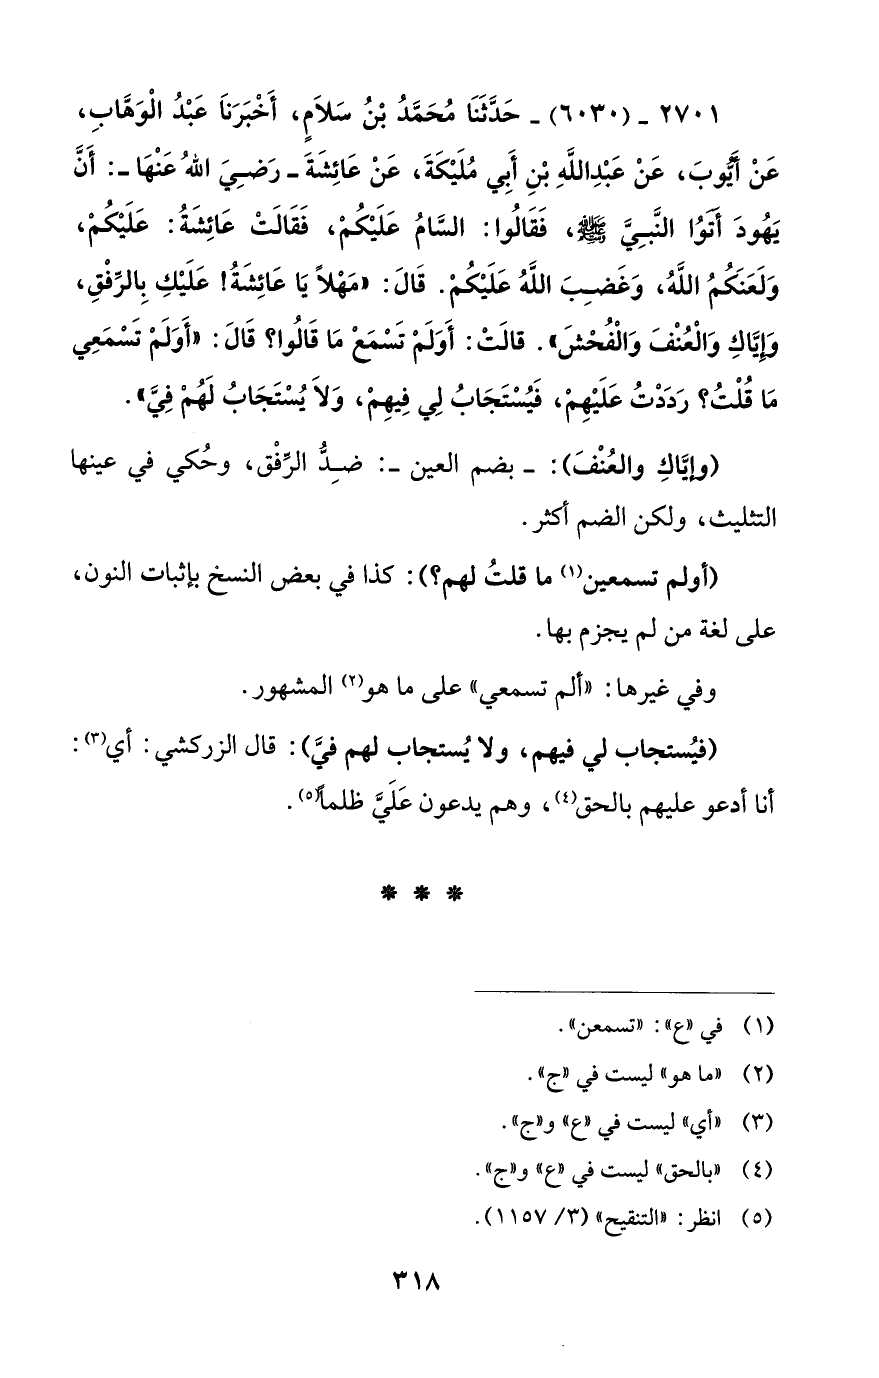 ٢٧٠١ ـ (٦٠٣٠) ـ حَدَّثَنَا مُحَمَّدُ بْنُ سَلاَمٍ، أَخْبَرَنَا عَبْدُ الْوَهَّابِ،
عَنْ أَيُّوبَ، عَنْ عَبْدِاللَّهِ بْنِ أَبِي مُلَيْكَةَ، عَنْ عَائِشَةَ ـ رَضِيَ اللهُ عَنْهَا ـ: أَنَّ
يَهُودَ أَتَوُا النَّبِيَّ ﷺ، فَقَالُوا: السَّامُ عَلَيْكُمْ، فَقَالَتْ عَائِشَةُ: عَلَيْكُمْ،
وَلَعَنَكُمُ اللَّهُ، وَغَضِبَ اللَّهُ عَلَيْكُمْ. قَالَ: «مَهْلاً يَا عَائِشَةُ! عَلَيْكِ بِالرِّفْقِ،
وَإِيَّاكِ وَالْعُنْفَ وَالْفُحْشَ». قالَتْ: أَوَلَمْ تَسْمَعْ مَا قَالُوا؟ قَالَ: «أَوَلَمْ تَسْمَعِي
مَا قُلْتُ؟ رَدَدْتُ عَلَيْهِمْ، فَيُسْتَجَابُ لِي فِيهِمْ، وَلاَ يُسْتَجَابُ لَهُمْ فِيَّ».
(وإيَّاكِ والعُنْفَ): ـ بضم العين ـ: ضِدُّ الرِّفْق، وحُكي في عينها
التثليث، ولكن الضم أكثر.
(أولم تسمعين(١) ما قلتُ لهم؟): كذا في بعض النسخ بإثبات النون،
على لغة من لم يجزم بها.
وفي غيرها: «ألم تسمعي» على ما هو(٢) المشهور.
(فيُستجاب لي فيهم، ولا يُستجاب لهم فيَّ): قال الزركشي: أي(٣):
أنا أدعو عليهم بالحق(٤)، وهم يدعون عَلَيَّ ظلماً(٥).
* * *
(١) في «ع»: «تسمعن».
(٢) «ما هو» ليست في «ج».
(٣) «أي» ليست في «ع» و«ج».
(٤) «بالحق» ليست في «ع» و«ج».
(٥) انظر: «التنقيح» (٣/ ١١٥٧).
٣١٨